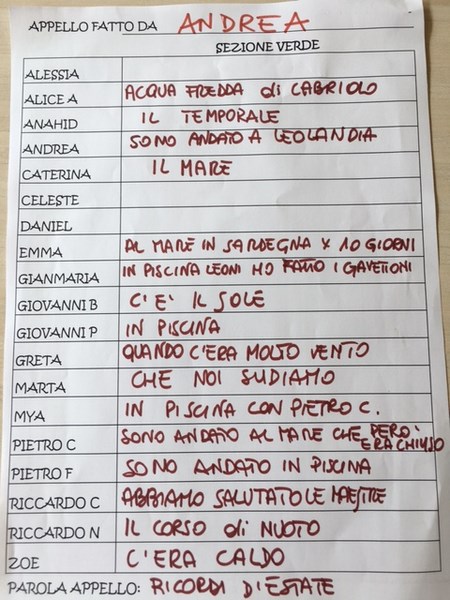 APPELLO FATTO DA ANDREA
SEZIONE VERDE
ALESSIA
ALICE A ACQUA FREDDA di CABRIOLO
ANAHID IL TEMPORALE
ANDREA SONO ANDATO A LEOLANDIA
CATERINA IL MARE
CELESTE
DANIEL
EMMA AL MARE IN SARDEGNA X 10 GIORNI
GIANMARIA IN PISCINA LEONI HO FATTO I GAVETTONI
GIOVANNI B C'E' IL SOLE
GIOVANNI P IN PISCINA
GRETA QUANDO C'ERA MOLTO VENTO
MARTA CHE NOI SUDIAMO
MYA IN PISCINA CON PIETRO C.
PIETRO C SONO ANDATO AL MARE CHE PERO' ERA CHIUSO
PIETRO F SONO ANDATO IN PISCINA
RICCARDO C ABBIAMO SALUTATO LE MAESTRE
RICCARDO N IL CORSO di NUOTO
ZOE C'ERA CALDO
PAROLA APPELLO: RICORDI D'ESTATE